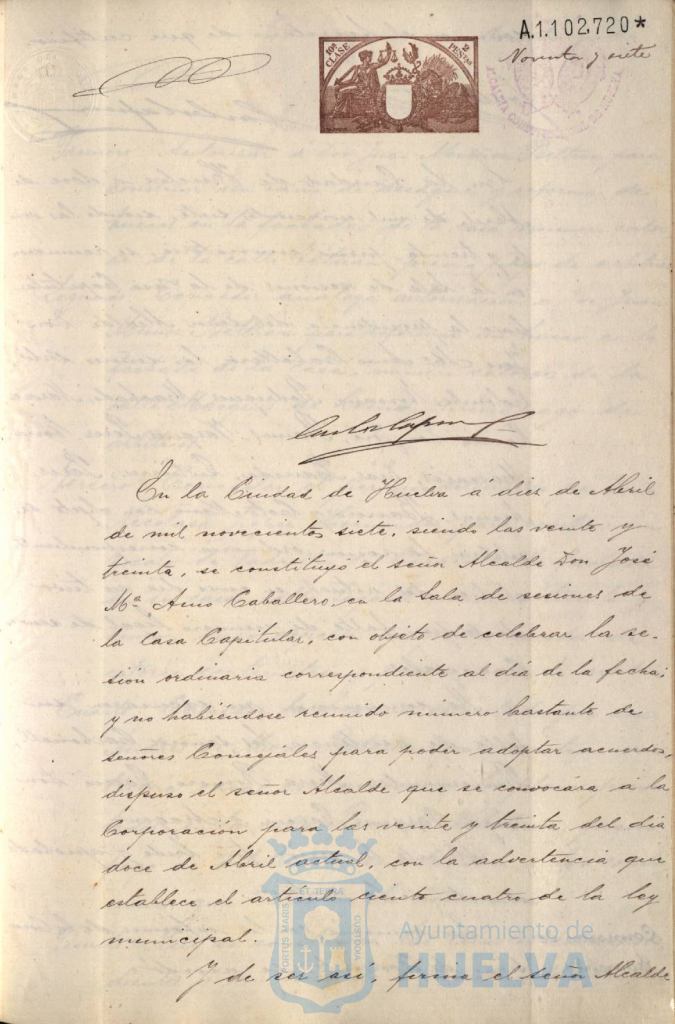 A.1.102.720*
Noventa y siete
10ª CLASE
2 PESETAS
ALCALDIA CONSTITUCIONAL DE HUELVA
En la Ciudad de Huelva á diez de Abril
de mil novecientos siete, siendo las veinte y
treinta, se constituyó el señor Alcalde Don José
Mª Amo Caballero, en la Sala de sesiones de
la Casa Capitular, con objeto de celebrar la se-
sión ordinaria correspondiente al día de la fecha;
y no habiéndose reunido número bastante de
señores Concejales para poder adoptar acuerdos,
dispuso el señor Alcalde que se convocára á la
Corporación para las veinte y treinta del día
doce de Abril actual, con la advertencia que
establece el artículo ciento cuatro de la ley
municipal.
Y de ser así, firma el señor Alcalde
PORTUS MARIS ET TERRÆ CUSTODIA
Ayuntamiento de
HUELVA